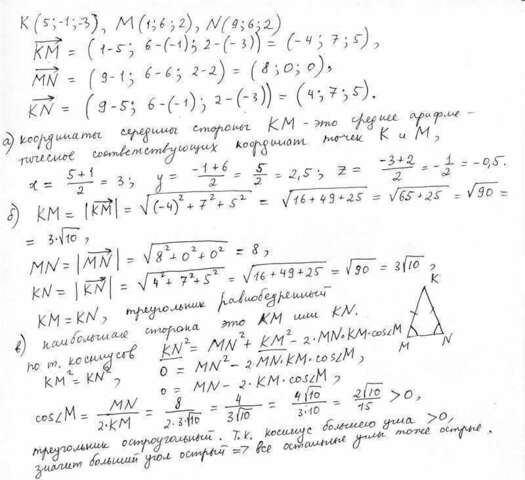 K(5;-1;-3), M(1;6;2), N(9;6;2)
KM = (1-5; 6-(-1); 2-(-3)) = (-4; 7; 5),
MN = (9-1; 6-6; 2-2) = (8; 0; 0),
KN = (9-5; 6-(-1); 2-(-3)) = (4; 7; 5).
а) координаты середины стороны KM - это среднее арифме-
тическое соответствующих координат точек K и M,
x = 5+1/2 = 3; y = -1+6/2 = 5/2 = 2,5; z = -3+2/2 = -1/2 = -0,5.
б) KM = |KM| = √((-4)²+7²+5²) = √(16+49+25) = √(65+25) = √90 =
= 3·√10,
MN = |MN| = √(8²+0²+0²) = 8,
KN = |KN| = √(4²+7²+5²) = √(16+49+25) = √90 = 3√10,
KM = KN, треугольник равнобедренный
K
M N
в) наибольшая сторона это KM или KN.
по т. косинусов KN² = MN² + KM² - 2·MN·KM·cos∠M
KM² = KN², 0 = MN² - 2·MN·KM·cos∠M,
0 = MN - 2·KM·cos∠M,
cos∠M = MN/2·KM = 8/2·3·√10 = 4/3√10 = 4√10/3·10 = 2√10/15 > 0,
треугольник остроугольный. Т.к. косинус большего угла >0,
значит больший угол острый => все остальные углы тоже острые.